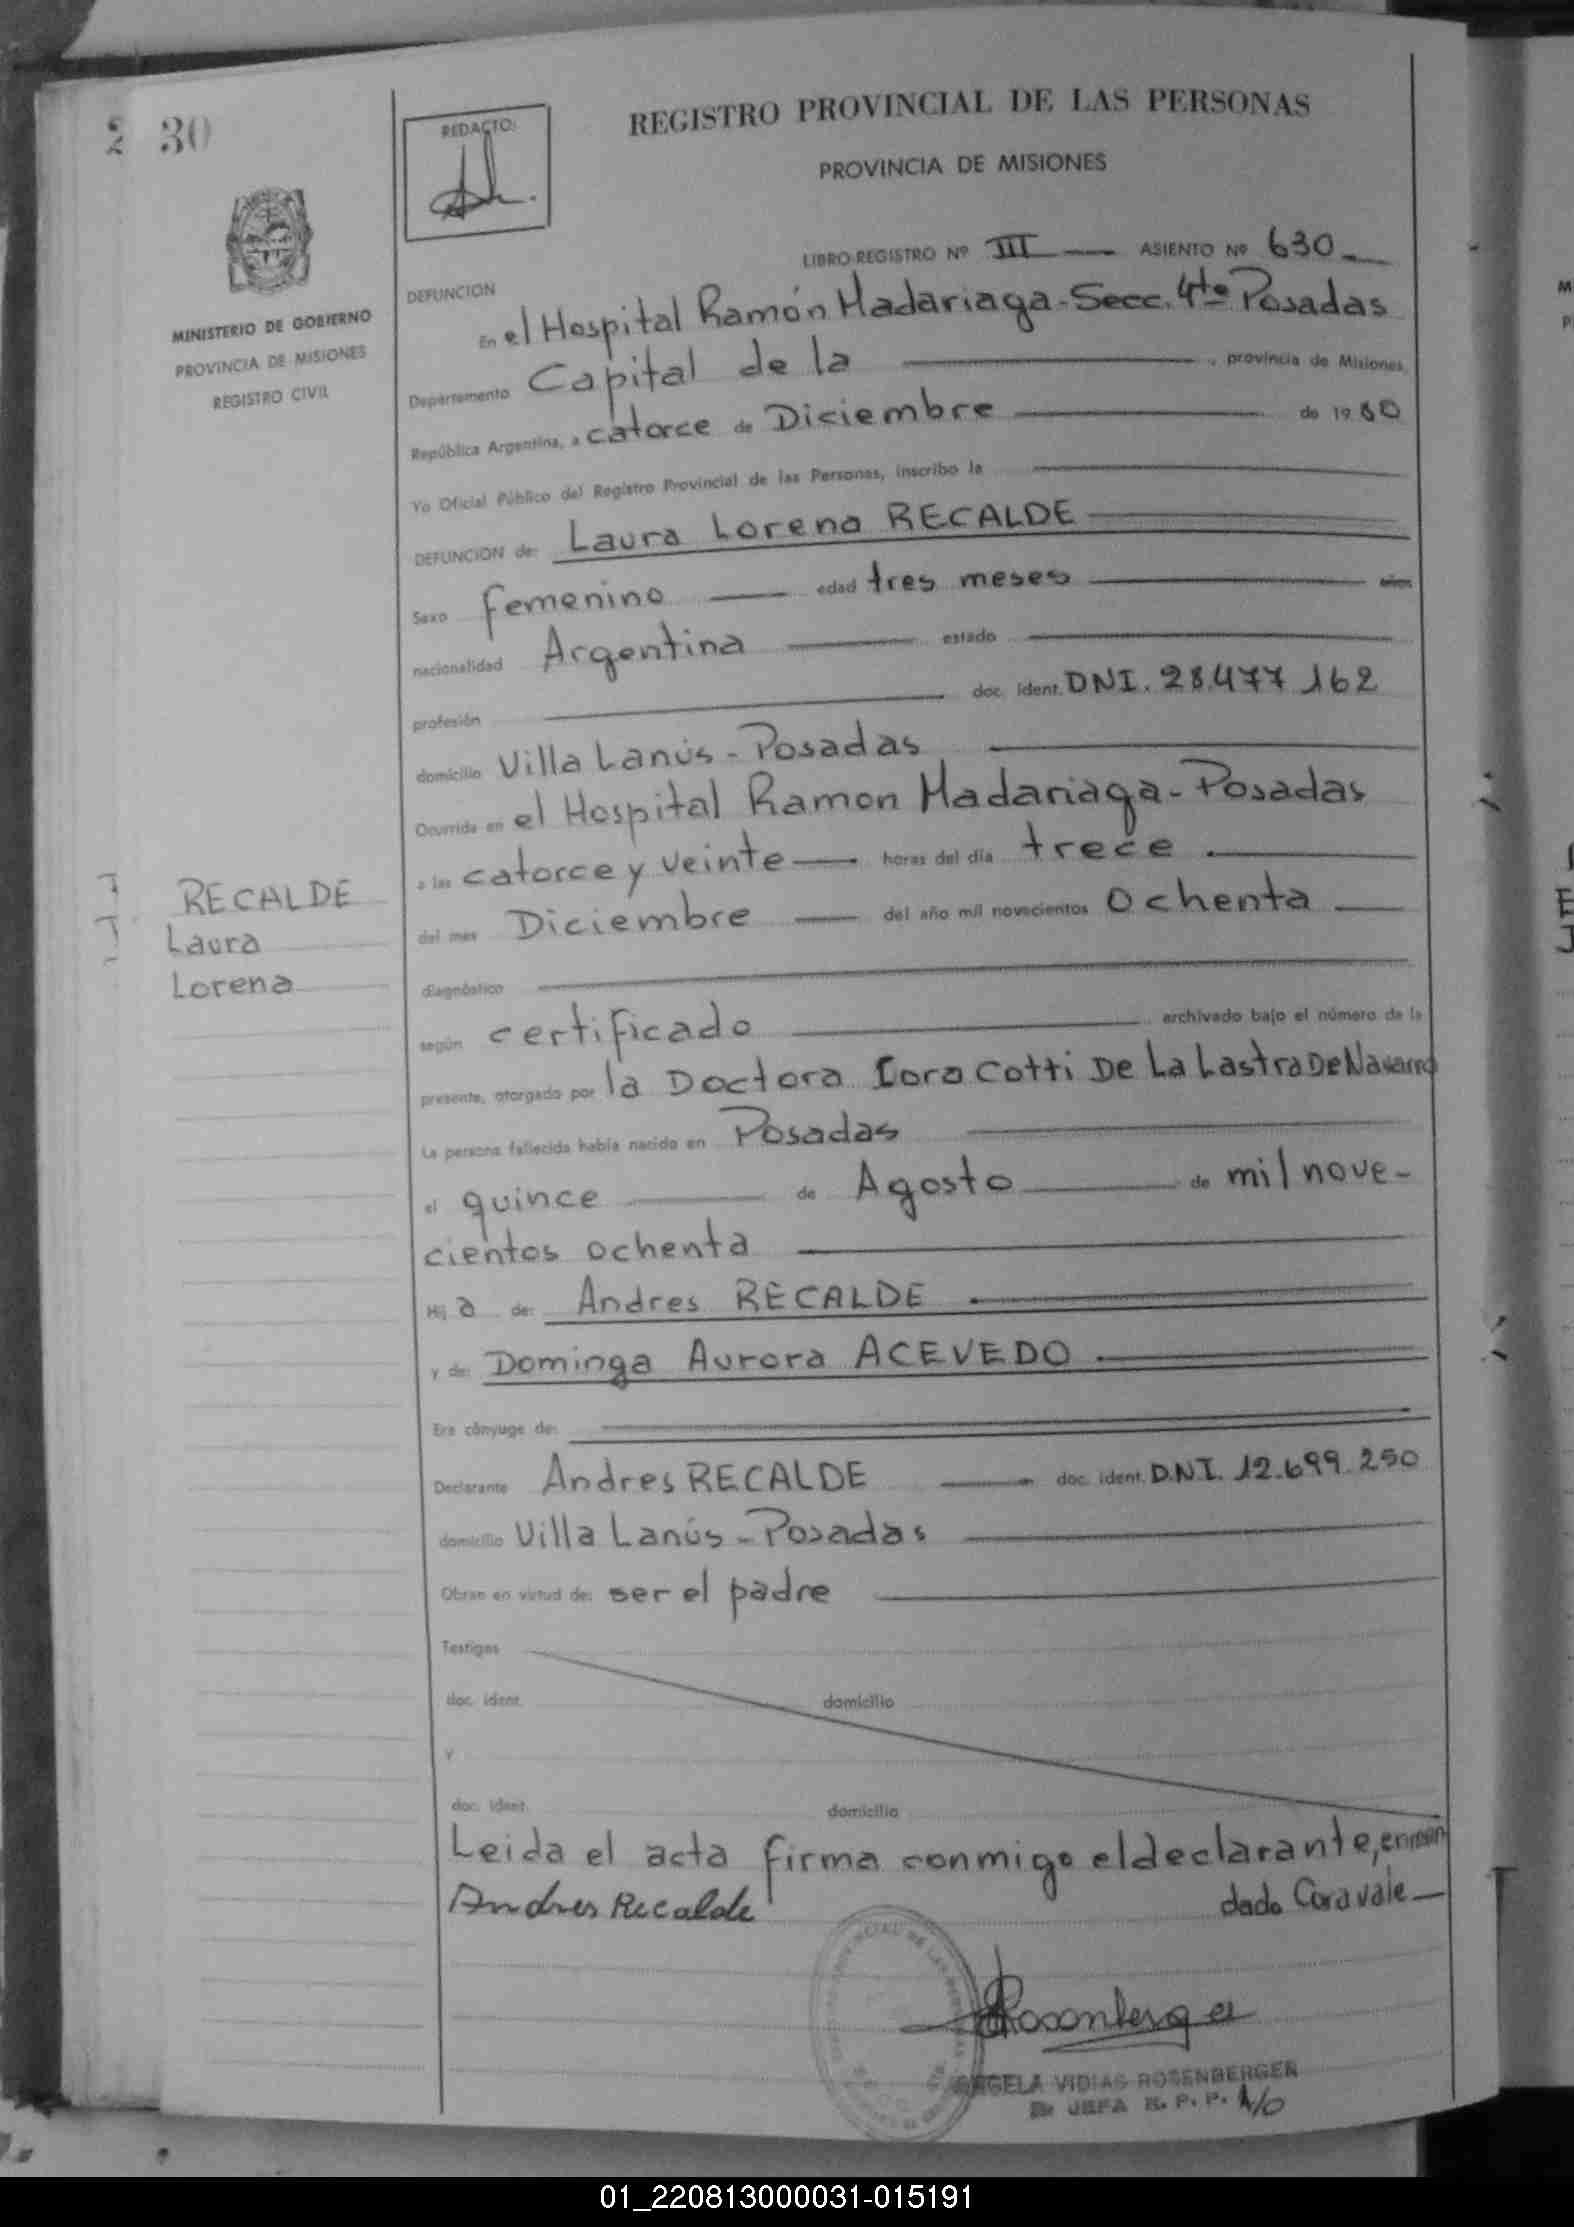 2 30
REDACTO:
REGISTRO PROVINCIAL DE LAS PERSONAS
PROVINCIA DE MISIONES
MINISTERIO DE GOBIERNO
PROVINCIA DE MISIONES
REGISTRO CIVIL
LIBRO-REGISTRO Nº III — ASIENTO Nº 630 —
DEFUNCION
En el Hospital Ramón Madariaga - Secc. 4ta Posadas
Departamento Capital de la —, provincia de Misiones,
República Argentina, a catorce de Diciembre — de 19 80
Yo Oficial Público del Registro Provincial de las Personas, inscribo la —
DEFUNCION de: Laura Lorena RECALDE —
Sexo femenino — edad tres meses — años
nacionalidad Argentina — estado —
profesión — doc. ident. DNI. 28.477 162
domicilio Villa Lanús - Posadas —
Ocurrida en el Hospital Ramon Madariaga - Posadas
a las catorce y veinte — horas del día trece —
del mes Diciembre — del año mil novecientos Ochenta —
RECALDE
Laura
Lorena
diagnóstico —
según certificado — archivado bajo el número de la
presente, otorgado por la Doctora Cora Cotti De La Lastra De Navarro
La persona fallecida había nacido en Posadas —
el quince — de Agosto — de mil nove-
cientos ochenta —
Hij a de: Andres RECALDE —
y de: Dominga Aurora ACEVEDO —
Era cónyuge de: —
Declarante Andres RECALDE — doc. ident. D.N.I. 12.699.250
domicilio Villa Lanús - Posadas —
Obran en virtud de: ser el padre —
Testigos
doc. ident. domicilio
y
doc. ident. domicilio
Leida el acta firma conmigo el declarante, enmen
dado Cora vale —
Andres Recalde
Rosenberger
ANGELA VIDIAS ROSENBERGER
JEFA R. P. P. A/O
01_220813000031-015191